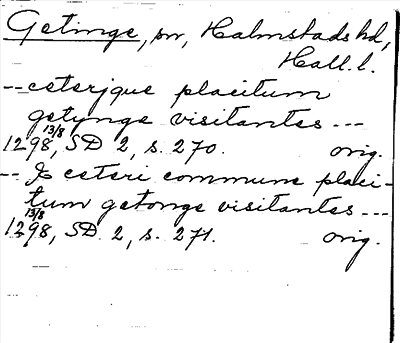 Getinge, sn, Halmstads hd,
Hall. l.
-- ceterjque placitum
getynge visitantes ---
1298 13/8, SD 2, s. 270. orig.
-- & ceteri commune placi-
tum getonge visitantes ---
1298 13/8, SD 2, s. 271. orig.